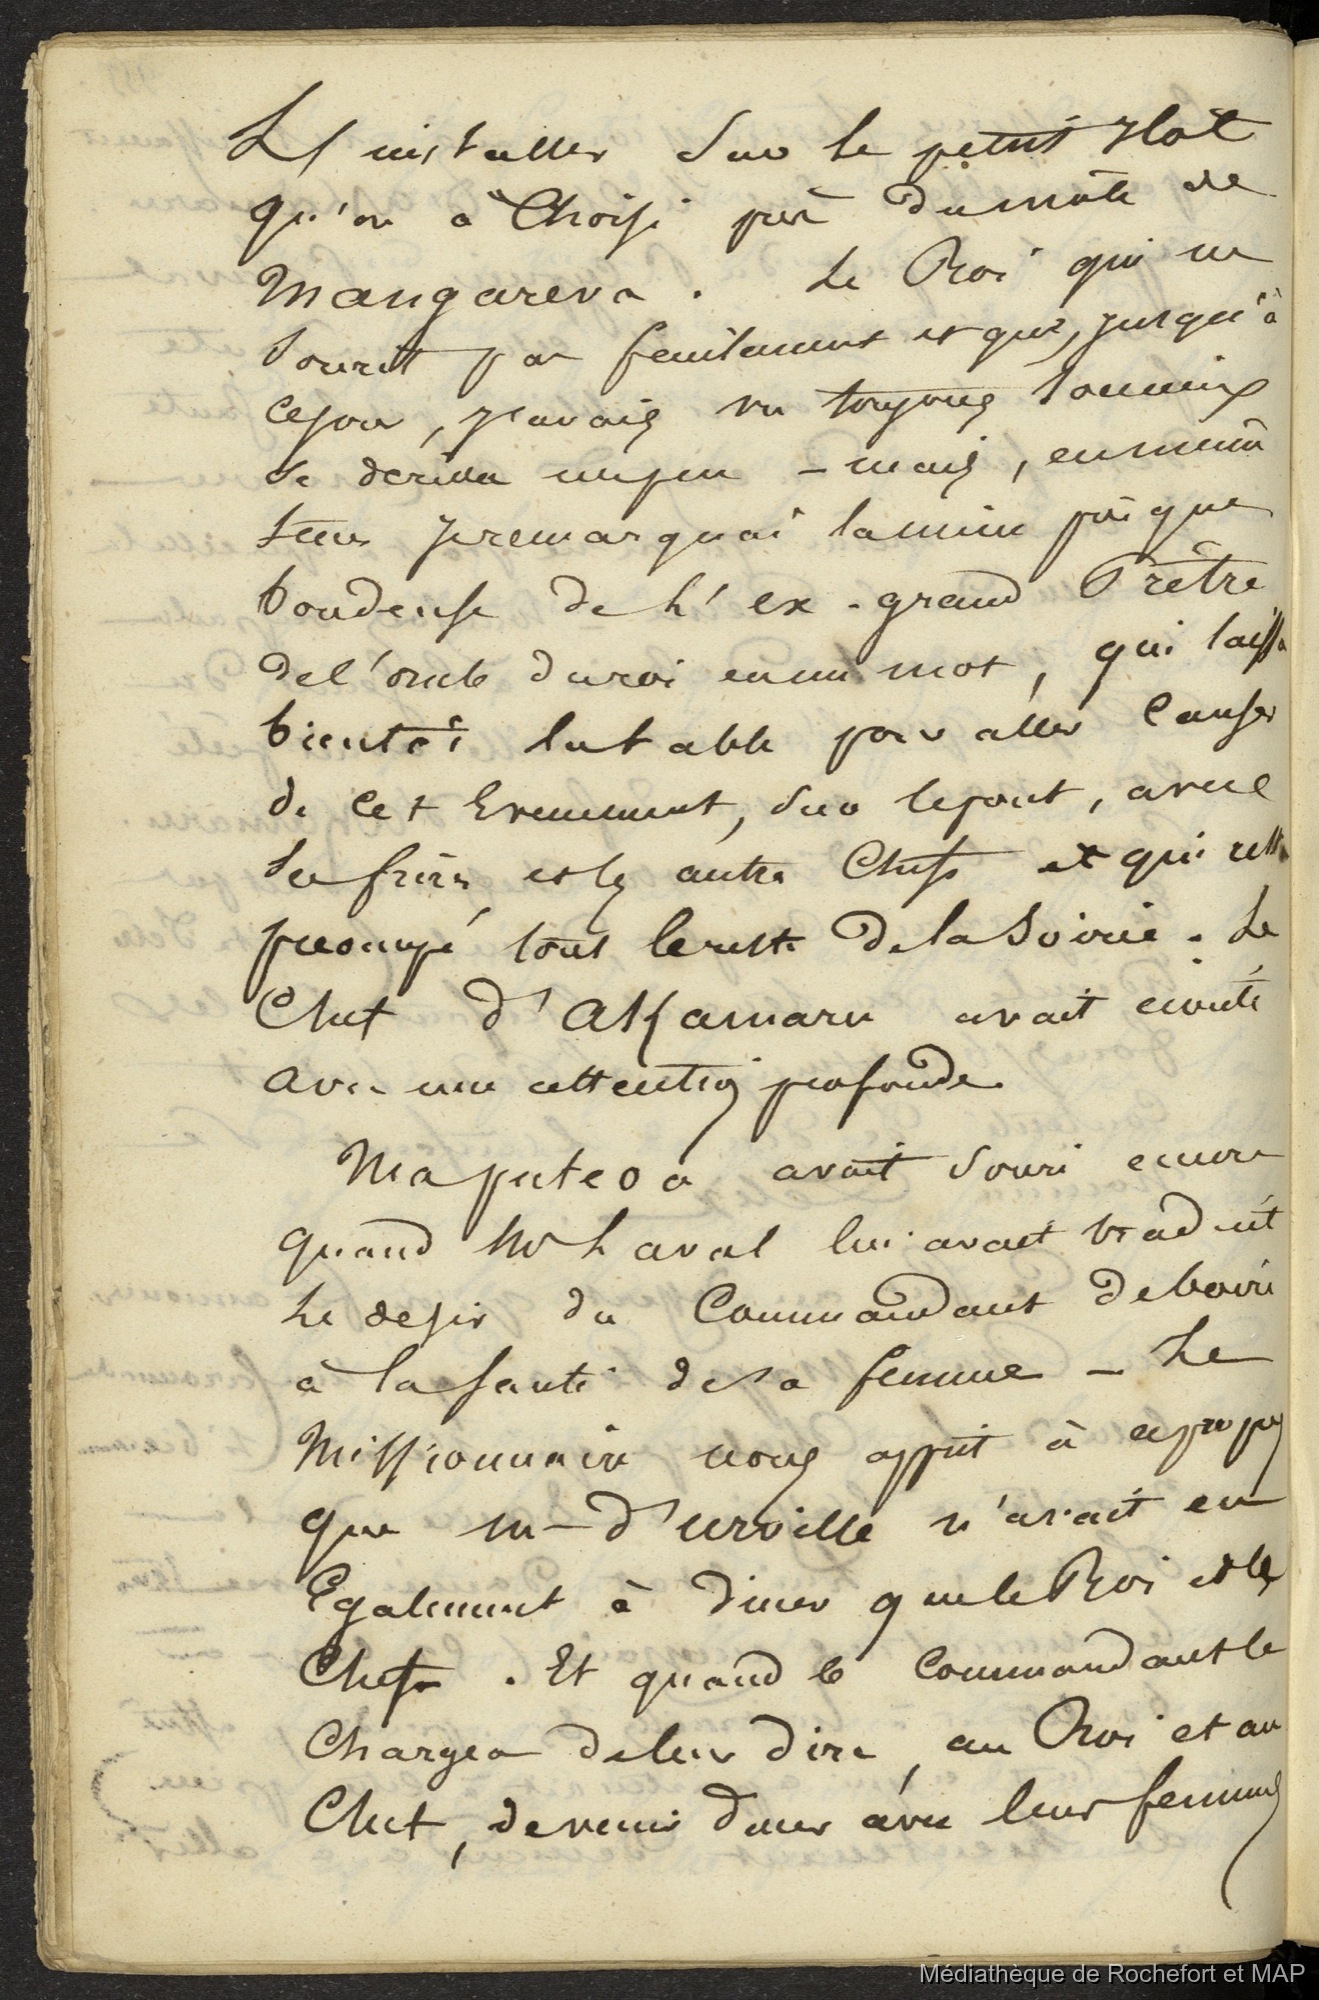 installer sur le petit Ilot
qu'on a Choisi près du mole de
Mangareva. Le Roi qui ne
Sourit pas facilement et que, jusqu'à
ce jour, j'avais vu toujours Sérieux
se derida un peu - mais, en même
tems je remarquai la mine presque
boudeuse de L'ex-grand Prêtre
de l'oncle du roi en un mot, qui laissa
bientôt la table pour aller Causer
de Cet Evenement, Sur le pont, avec
Ses frères, et les autres Chefs et qui resta
preocupé tout le reste de la Soirée. Le
Chef d'AKamaru avait ecouté
avec une attention profonde.
Maputeoa avait Souri encore
quand Mr Laval lui avait traduit
Le desir du Commandant de boire
à la Santé de Sa femme - Le
Missionnaire nous apprit à ce propos
que m- d'urville n'avait eu
Egalement à diner que le Roi et les
Chefs. Et quand le Commandant le
Chargea de leur dire, au Roi et au
Chef, de venir diner avec leurs femmes
Médiathèque de Rochefort et MAP